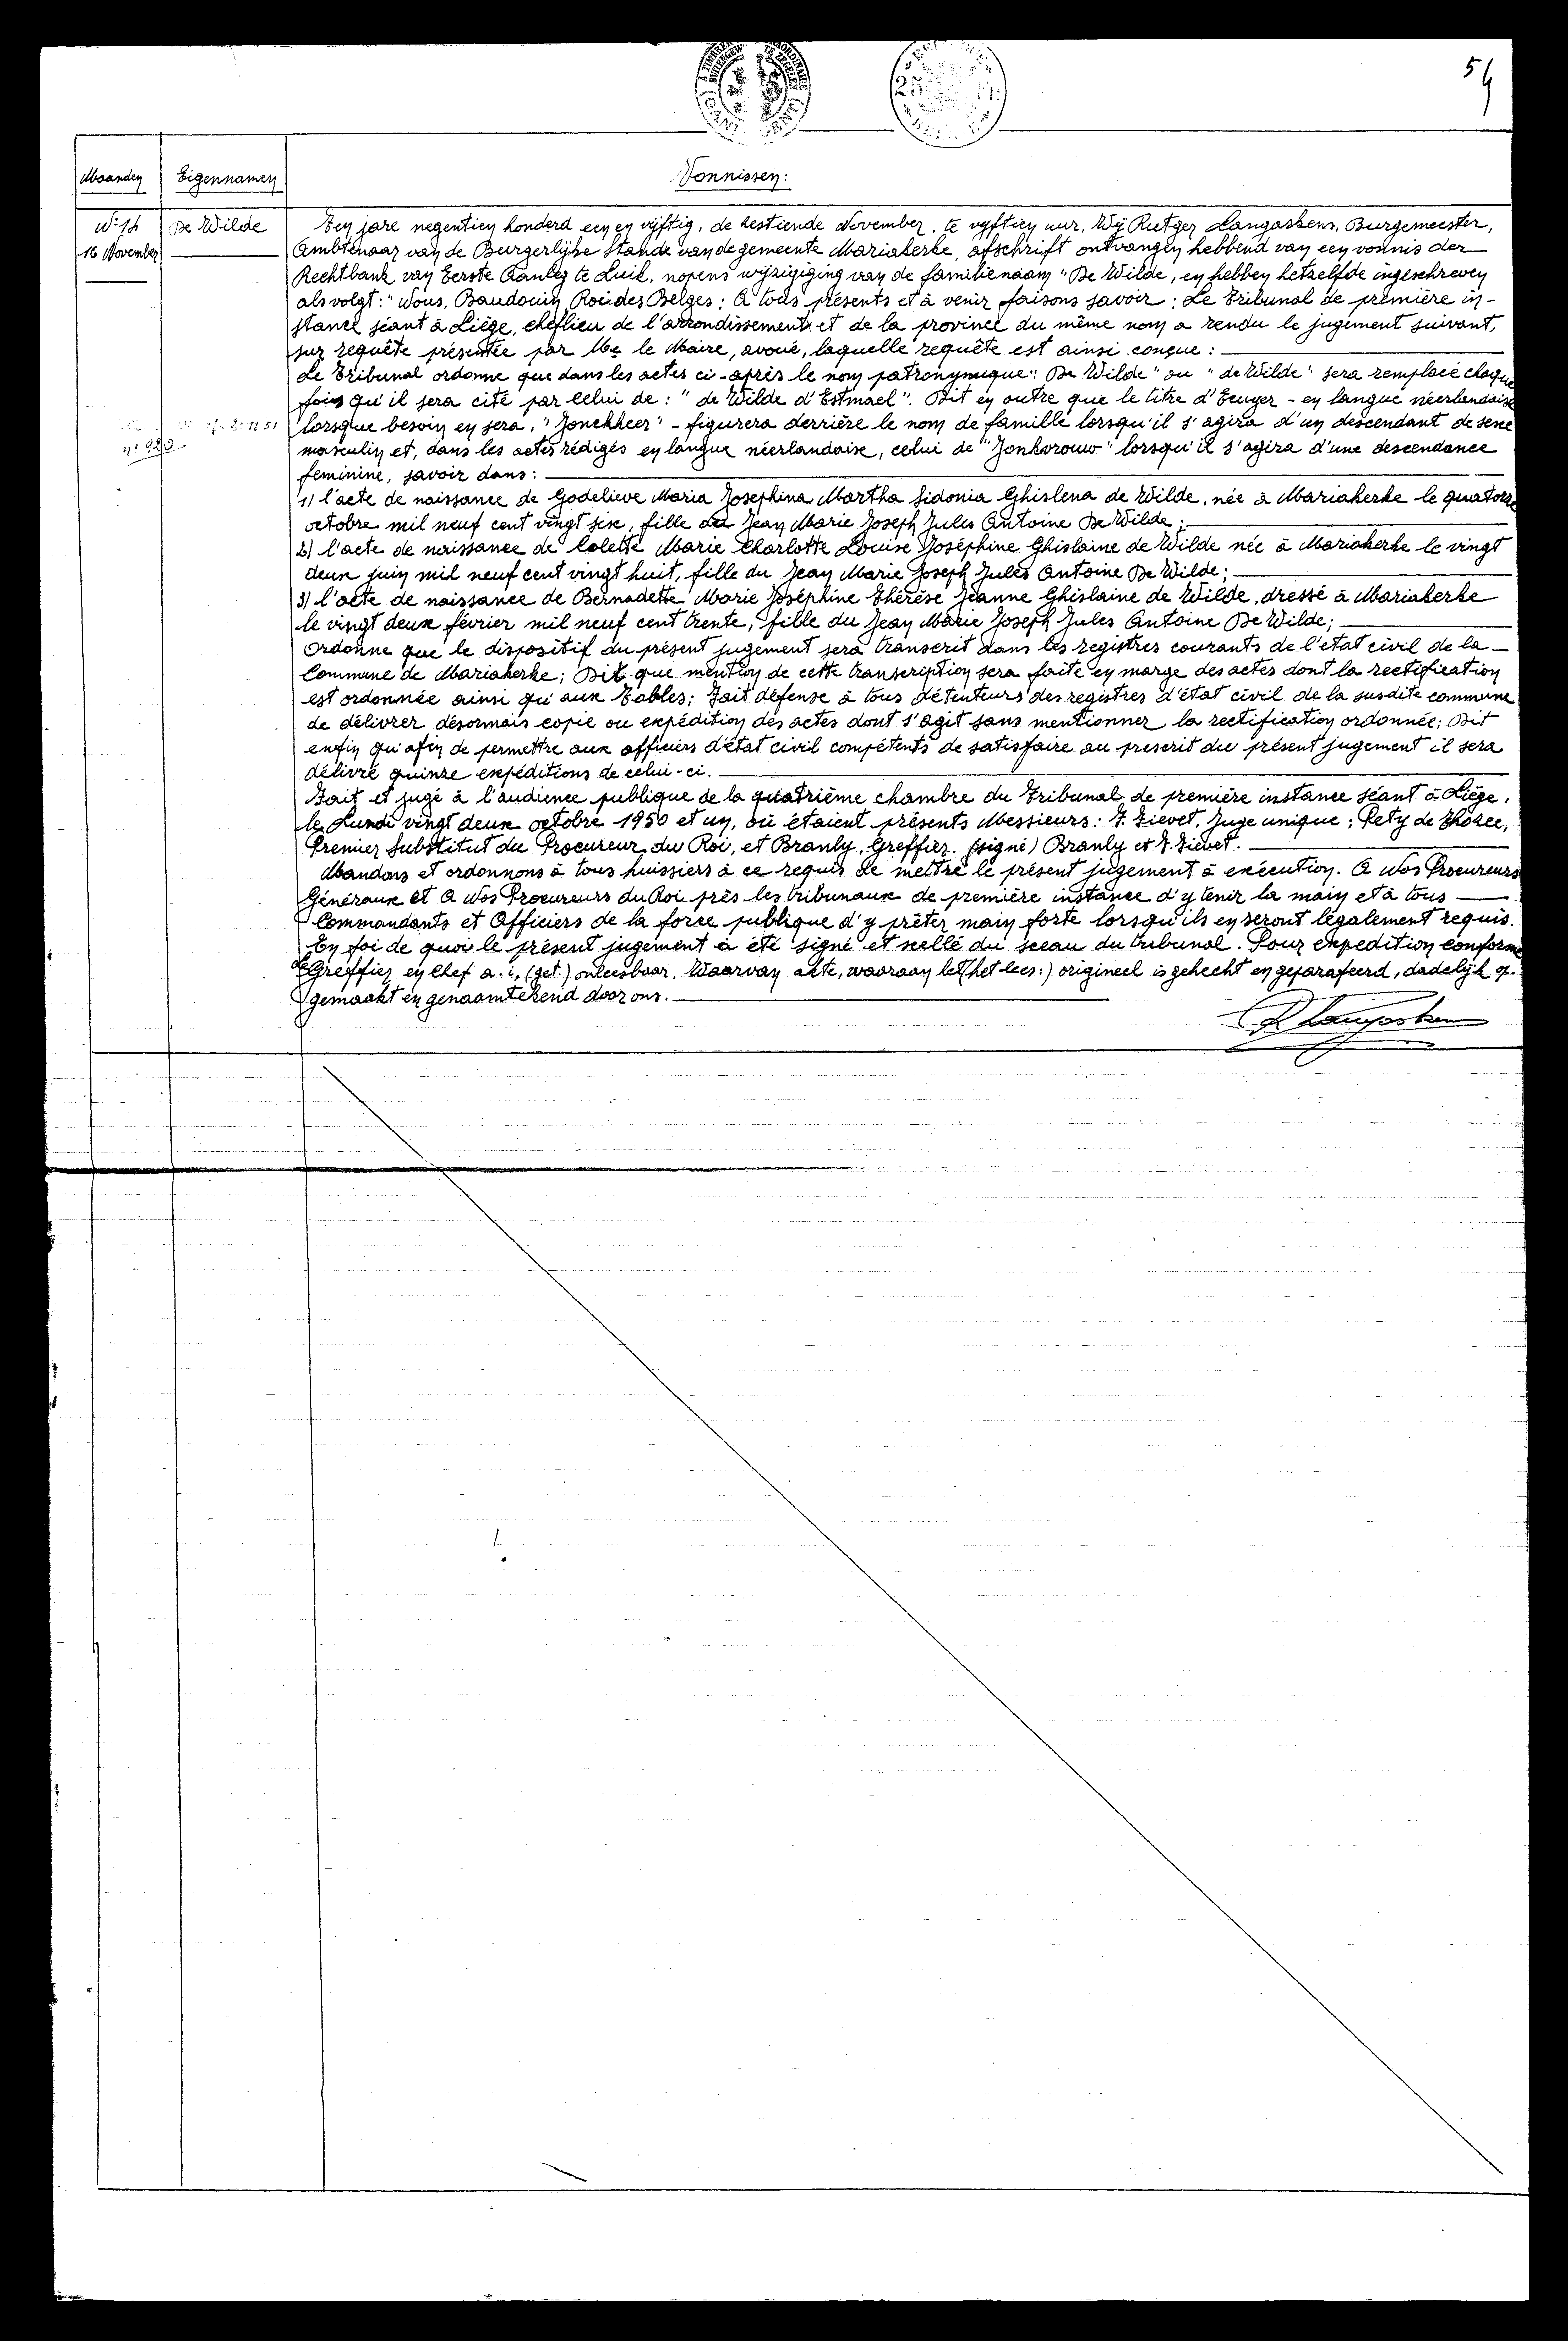 54
Maanden Eigennamen Vonnissen:
N: 14 De Wilde
16 November
Ten jare negentien honderd een en vijftig, de zestiende November, te vyftien uur, Wij Rutger Langaskens, Burgemeester,
Ambtenaar van de Burgerlijke Stande van de gemeente Mariakerke, afschrift ontvangen hebbend van een vonnis der
Rechtbank van Eerste Aanleg te Luik, nopens wijzigiging van de familienaam "De Wilde, en hebben hetzelfde ingeschreven
als volgt: "Nous, Baudouin, Roi des Belges: A tous présents et à venir faisons savoir: Le Tribunal de première in-
stance séant à Liège, cheflieu de l'arrondissement et de la province du même nom a rendu le jugement suivant,
sur requête présentée par Me le Maire, avoué, laquelle requête est ainsi conçue:
Le Tribunal ordonne que dans les actes ci-après le nom patronymique: "De Wilde" ou "de Wilde" sera remplacé chaque
fois qu'il sera cité par celui de: "de Wilde d'Estmael". Dit en outre que le titre d'Ecuyer - en langue néerlandaise
lorsque besoin en sera, "Jonckheer" - figurera derrière le nom de famille lorsqu'il s'agira d'un descendant de sexe
masculin et, dans les actes rédigés en langue néerlandaise, celui de "Jonkvrouw" lorsqu'il s'agira d'une descendance
feminine, savoir dans:
1) l'acte de naissance de Godelieve Maria Josephina Martha Sidonia Ghislena de Wilde, née à Mariakerke le quatorze
octobre mil neuf cent vingt six, fille de Jean Marie Joseph Jules Antoine De Wilde;
2) l'acte de naissance de Colette Marie Charlotte Louise Joséphine Ghislaine de Wilde née à Mariakerke le vingt
deux juin mil neuf cent vingt huit, fille du Jean Marie Joseph Jules Antoine De Wilde;
3) l'acte de naissance de Bernadette Marie Joséphine Thérèse Jeanne Ghislaine de Wilde, dressé à Mariakerke
le vingt deux février mil neuf cent trente, fille du Jean Marie Joseph Jules Antoine De Wilde;
Ordonne que le dispositif du présent jugement sera transcrit dans les registres courants de l'état civil de la
Commune de Mariakerke; Dit que mention de cette transcription sera faite en marge des actes dont la rectification
est ordonnée ainsi qu'aux Tables; Fait défense à tous détenteurs des registres d'état civil de la susdite commune
de délivrer désormais copie ou expédition des actes dont s'agit sans mentionner la rectification ordonnée; Dit
enfin qu'afin de permettre aux officiers d'état civil compétents de satisfaire au prescrit du présent jugement il sera
délivré quinze expéditions de celui-ci.
Fait et jugé à l'audience publique de la quatrième chambre du Tribunal de première instance séant à Liège,
le Lundi vingt deux octobre 1950 et un, où étaient présents Messieurs: F. Fievet, Juge unique; Pety de Thozee,
Premier Substitut du Procureur du Roi, et Branly, Greffier. (signé) Branly et F. Fievet.
Mandons et ordonnons à tous huissiers à ce requis de mettre le présent jugement à exécution. A Nos Procureurs
Généraux et A Nos Procureurs du Roi près les tribunaux de première instance d'y tenir la main et à tous
Commandants et Officiers de la force publique d'y prêter main forte lorsqu'ils en seront légalement requis.
En foi de quoi le présent jugement a été signé et scellé du sceau du tribunal. Pour expedition conforme
Le Greffier en Chef a.i, (get.) onleesbaar. Waarvan akte, waaraan let (het lees:) origineel is gehecht en geparafeerd, dadelijk op-
gemaakt en genaamtekend door ons.
R Langaskens